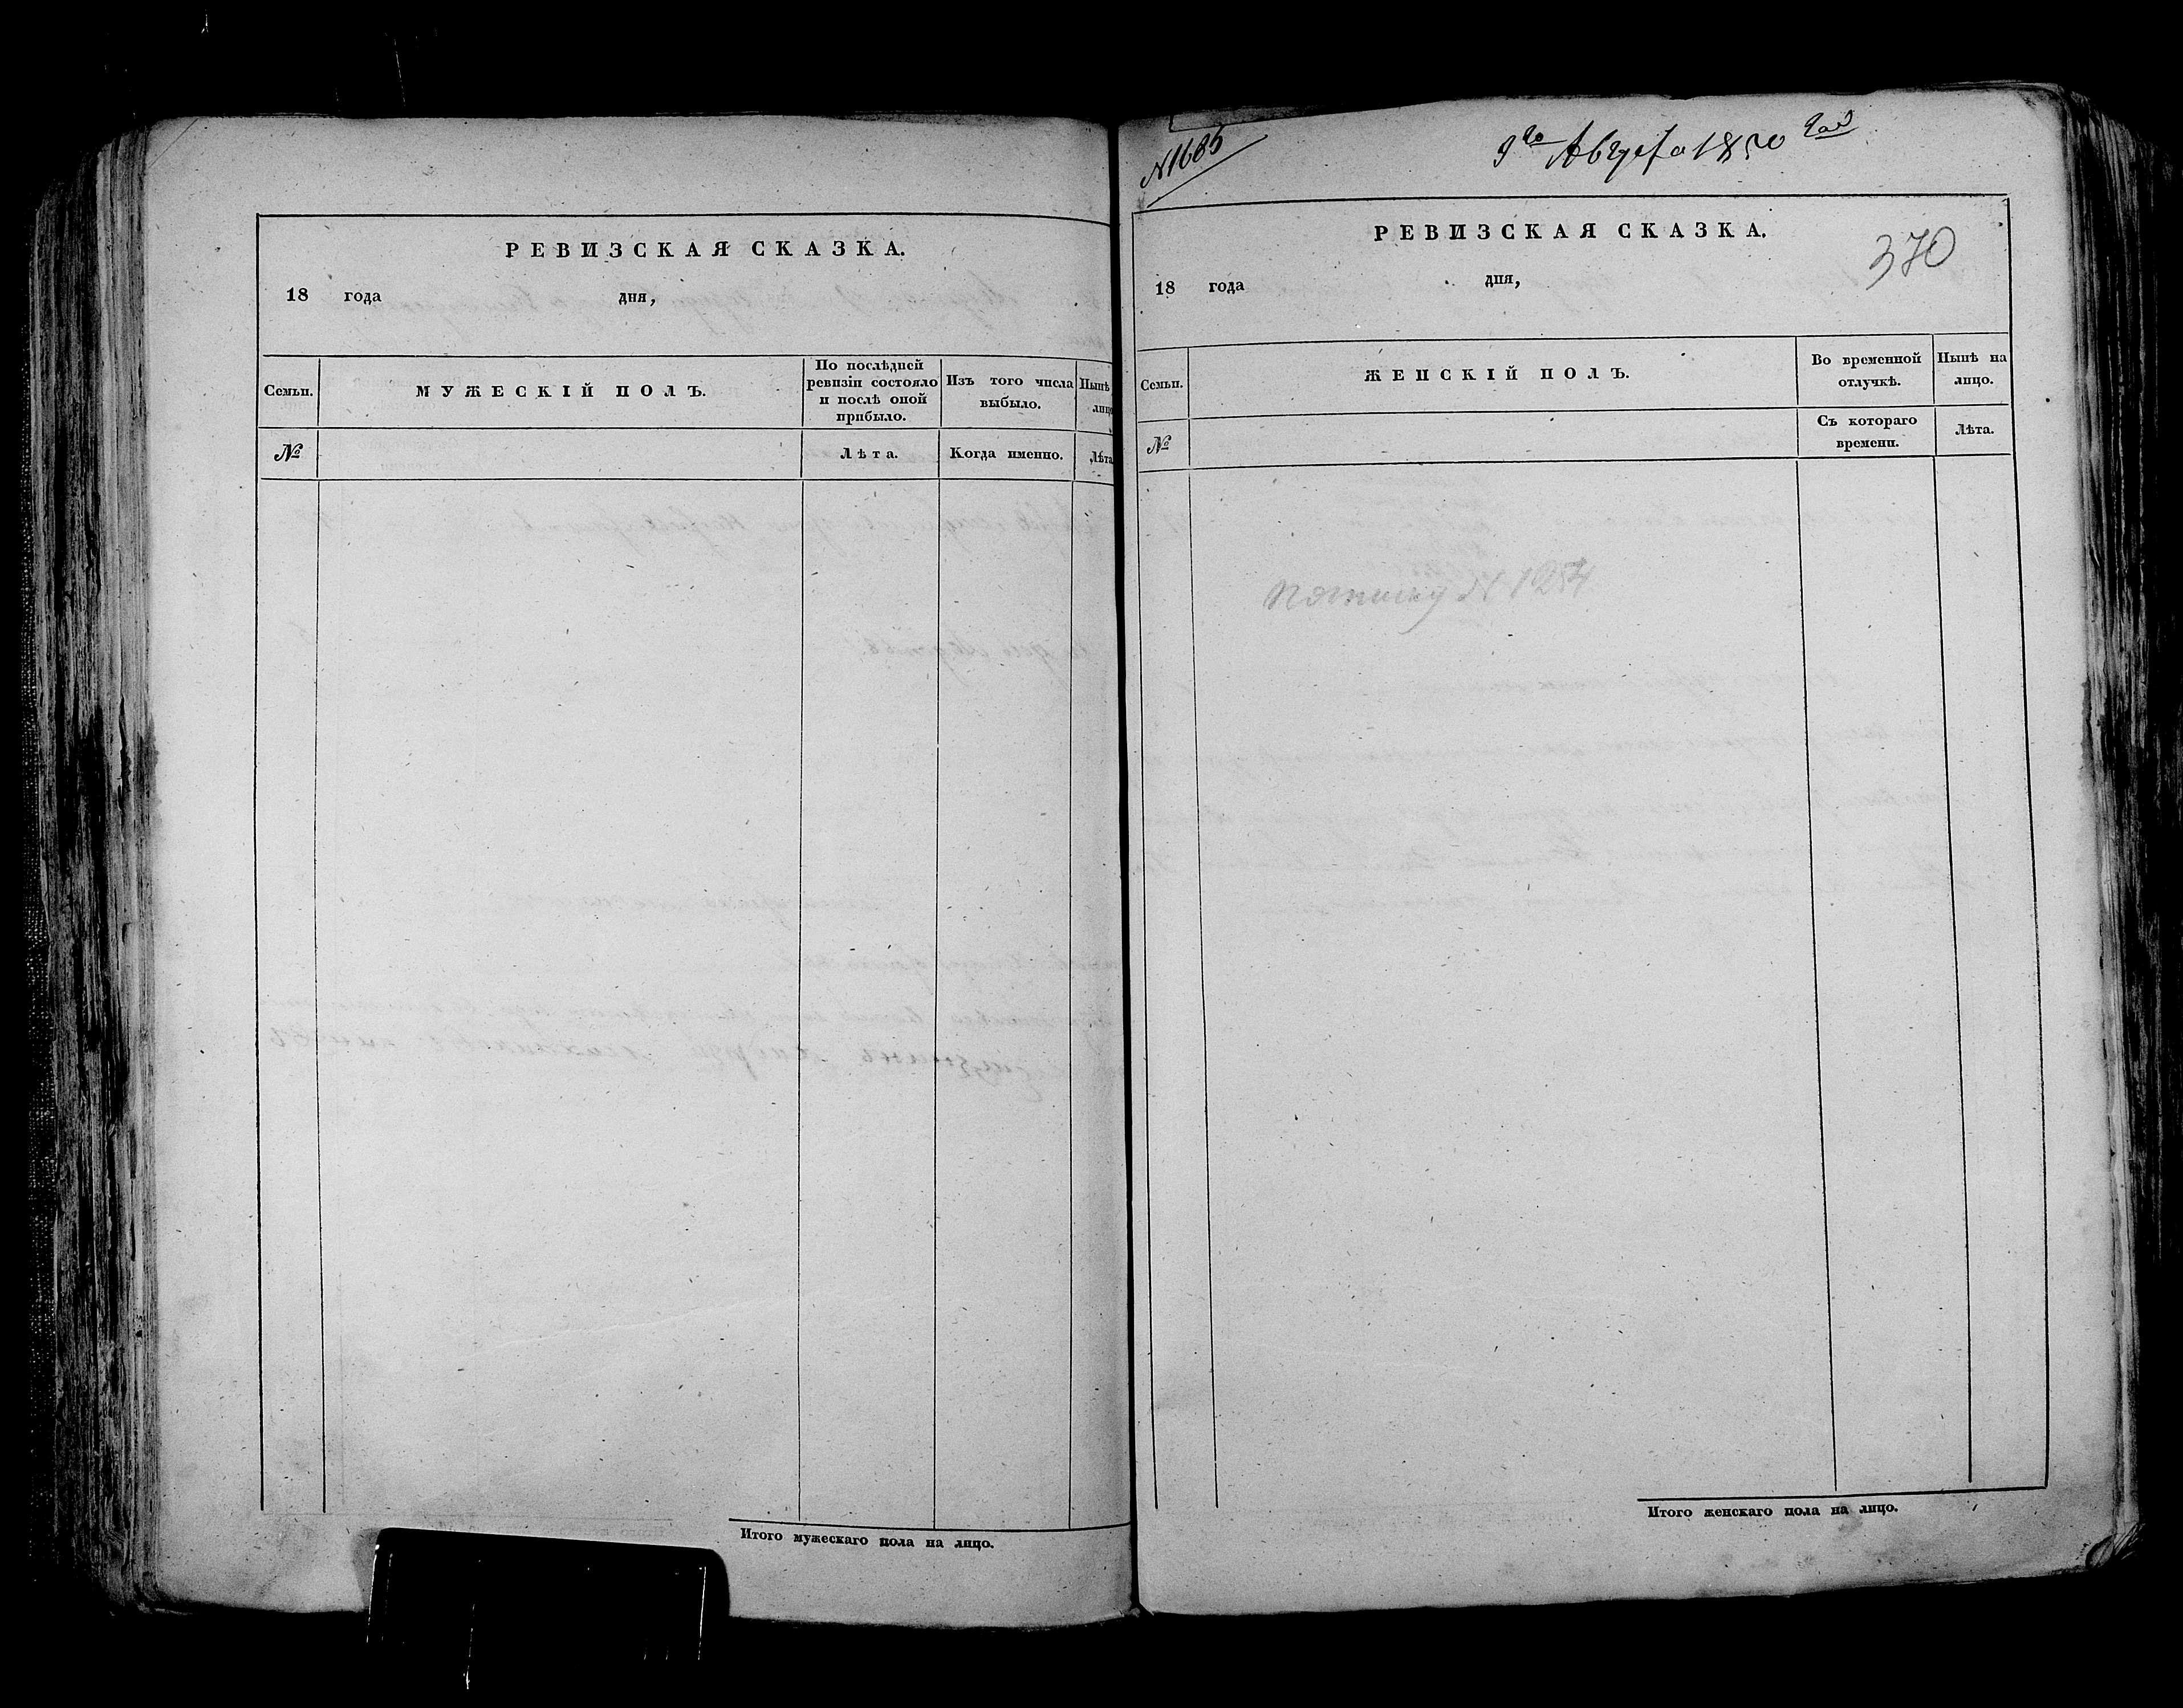 РЕВИЗСКАЯ СКАЗКА.
18 года дня,
Семьи.
МУЖЕСКІЙ ПОЛЪ.
По послѣдней ревизіи состояло и послѣ оной прибыло.
Изъ того числа выбыло.
Нынѣ лицо
№
Лѣта.
Когда именно.
Лѣта
Итого мужескаго пола на лицо.
N1685
9го Августа 1850 года
РЕВИЗСКАЯ СКАЗКА.
370
18 года дня,
Семьи.
ЖЕНСКІЙ ПОЛЪ.
Во временной отлучкѣ.
Нынѣ на лицо.
№
Съ котораго времени.
Лѣта.
N 1254
Итого женскаго пола на лицо.